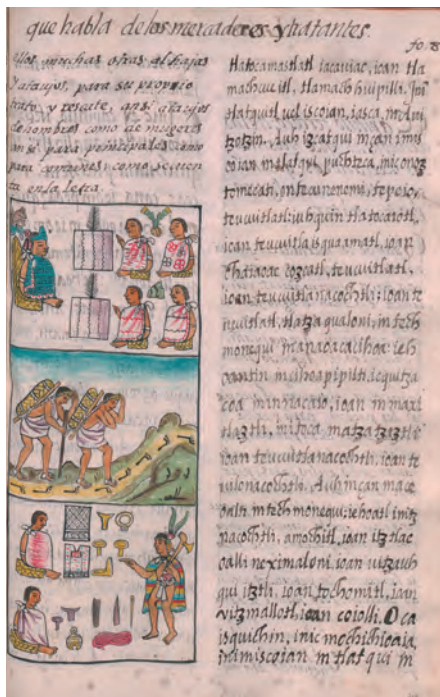 que habla de los mercaderes y tratantes.
fo. 8
ellos muchas otras alhajas
y atauios, para su proprio
trato y rescate, ansi atauios
de hombres como de mugeres
ansi para principales como
para comunes: como se cuen
ta en la letra.
tlatocamaxtlatl iacauiac, ioan tla
machcueitl, tlamachuipilli. Inin
tlatquitl uel iscoian, iasca, in Aui
tzotzin. Auh izcatqui inçan inis
coian intlatqui, puchteca, inic onoz
tomecati, onteucnenemi, teucuitlatl
ioan teucuitlaisquaamatl, ioan
chaiaoac cozcatl, teucuitlatl,
ioan teucuitlanacochtli: ioan te
monequi in anaoaca cihoa: ieh
oantin in cihoapipilti, ic quitza
ioan teucuitlanacochtli, ioan te
uilonacochtli. Auh inçan mace
oalti intech monequi: iehoatl initz
nacochtli, amochitl, ioan itztlac
oalli neximaloni, ioan uitzauh
qui itztli. ioan tochomitl, ioan
vitzmallotl, ioan coiolli. O ca
isquichin, inic mochichioaia,
inimiscoian in tlatqui in